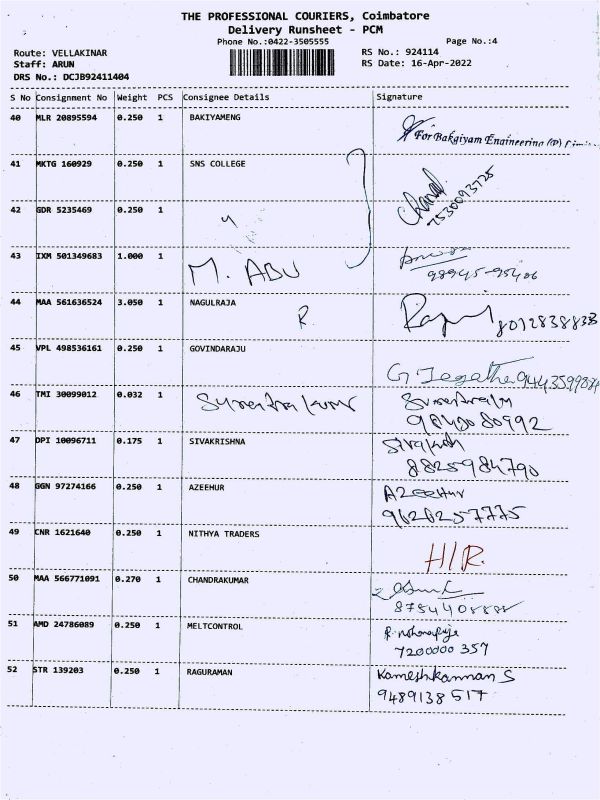 THE PROFESSIONAL COURIERS, Coimbatore
Delivery Runsheet - PCM
Phone No.:0422-3505555 Page No.:4
Route: VELLAKINAR RS No.: 924114
Staff: ARUN RS Date: 16-Apr-2022
DRS No.: DCJB92411404
S No Consignment No Weight PCS Consignee Details Signature
40 MLR 20895594 0.250 1 BAKIYAMENG
For Bakgiyam Engineering (P)
41 MKTG 160929 0.250 1 SNS COLLEGE
7530093725
42 GDR 5235469 0.250 1
43 IXM 501349683 1.000 1 M. ABU
98945-95406
44 MAA 561636524 3.050 1 NAGULRAJA
R.
8012838833
45 VPL 498536161 0.250 1 GOVINDARAJU
G Jegatha 9443599884
46 TMI 30099012 0.032 1 Surendra kumar
9843080992
47 DPI 10096711 0.175 1 SIVAKRISHNA
8825984790
48 GGN 97274166 0.250 1 AZEEHUR AZEEHUR
9626257775
49 CNR 1621640 0.250 1 NITHYA TRADERS
H/R.
50 MAA 566771091 0.270 1 CHANDRAKUMAR
51 AMD 24786089 0.250 1 MELTCONTROL
7200000 357
52 STR 139203 0.250 1 RAGURAMAN Kameshkannan S
9489138517